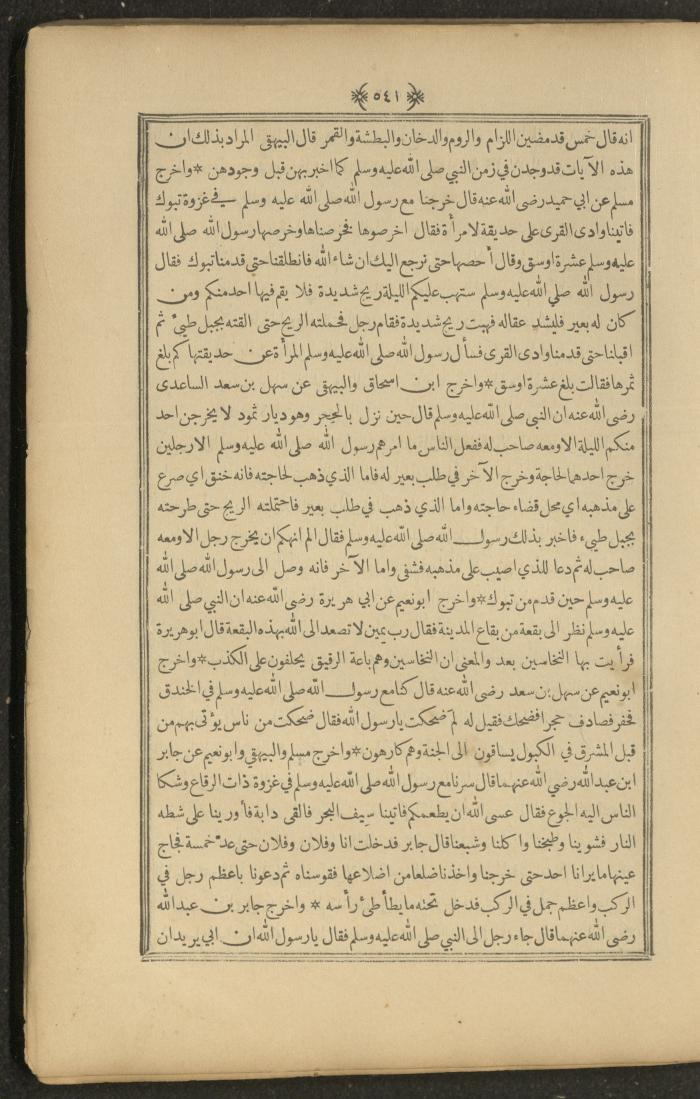 ٥٤١
انه قال خمس قد مضين اللزام والروم والدخان والبطشة والقمر قال البيهقي المراد بذلك ان
هذه الآيات قد وجدن في زمن النبي صلى الله عليه وسلم كما اخبر بهن قبل وجودهن * واخرج
مسلم عن ابي حميد رضى الله عنه قال خرجنا مع رسول الله صلى الله عليه وسلم في غزوة تبوك
فاتينا وادى القرى على حديقة لامرأة فقال اخرصوها فخرصناها وخرصها رسول الله صلى الله
عليه وسلم عشرة اوسق وقال أحصها حتى نرجع اليك ان شاء الله فانطلقنا حتى قدمنا تبوك فقال
رسول الله صلى الله عليه وسلم ستهب عليكم الليلة ريح شديدة فلا يقم فيها احد منكم ومن
كان له بعير فليشد عقاله فهبت ريح شديدة فقام رجل فحملته الريح حتى القته بجبل طيئ ثم
اقبلنا حتى قدمنا وادى القرى فسأل رسول الله صلى الله عليه وسلم المرأة عن حديقتها كم بلغ
ثمرها فقالت بلغ عشرة اوسق * واخرج ابن اسحاق والبيهقي عن سهل بن سعد الساعدى
رضى الله عنه ان النبي صلى الله عليه وسلم قال حين نزل بالحجر وهو ديار ثمود لا يخرجن احد
منكم الليلة الا ومعه صاحب له ففعل الناس ما امرهم رسول الله صلى الله عليه وسلم الا رجلين
خرج احدهما لحاجة وخرج الآخر في طلب بعير له فاما الذي ذهب لحاجته فانه خنق اي صرع
على مذهبه اي محل قضاء حاجته واما الذي ذهب في طلب بعير فاحتملته الريح حتى طرحته
بجبل طيء فاخبر بذلك رسول الله صلى الله عليه وسلم فقال الم انهكم ان يخرج رجل الا ومعه
صاحب له ثم دعا للذي اصيب على مذهبه فشفى واما الآخر فانه وصل الى رسول الله صلى الله
عليه وسلم حين قدم من تبوك * واخرج ابو نعيم عن ابي هريرة رضى الله عنه ان النبي صلى الله
عليه وسلم نظر الى بقعة من بقاع المدينة فقال رب يمين لا تصعد الى الله بهذه البقعة قال ابو هريرة
فرأيت بها النخاسين بعد والمعنى ان النخاسين وهم باعة الرقيق يحلفون على الكذب * واخرج
ابو نعيم عن سهل بن سعد رضى الله عنه قال كنا مع رسول الله صلى الله عليه وسلم في الخندق
فحفر فصادف حجرا فضحك فقيل له لم ضحكت يا رسول الله فقال ضحكت من ناس يؤتى بهم من
قبل المشرق في الكبول يساقون الى الجنة وهم كارهون * واخرج مسلم والبيهقي وابو نعيم عن جابر
ابن عبدالله رضى الله عنهما قال سرنا مع رسول الله صلى الله عليه وسلم في غزوة ذات الرقاع وشكا
الناس اليه الجوع فقال عسى الله ان يطعمكم فاتينا سيف البحر فالقى دابة فأورينا على شطه
النار فشوينا وطبخنا واكلنا وشبعنا قال جابر فدخلت انا وفلان وفلان حتى عد خمسة فجاج
عينها ما يرانا احد حتى خرجنا واخذنا ضلعا من اضلاعها فقوسناه ثم دعونا باعظم رجل في
الركب واعظم جمل في الركب فدخل تحته ما يطأطئ رأسه * واخرج جابر بن عبدالله
رضى الله عنهما قال جاء رجل الى النبي صلى الله عليه وسلم فقال يا رسول الله ان ابي يريد ان